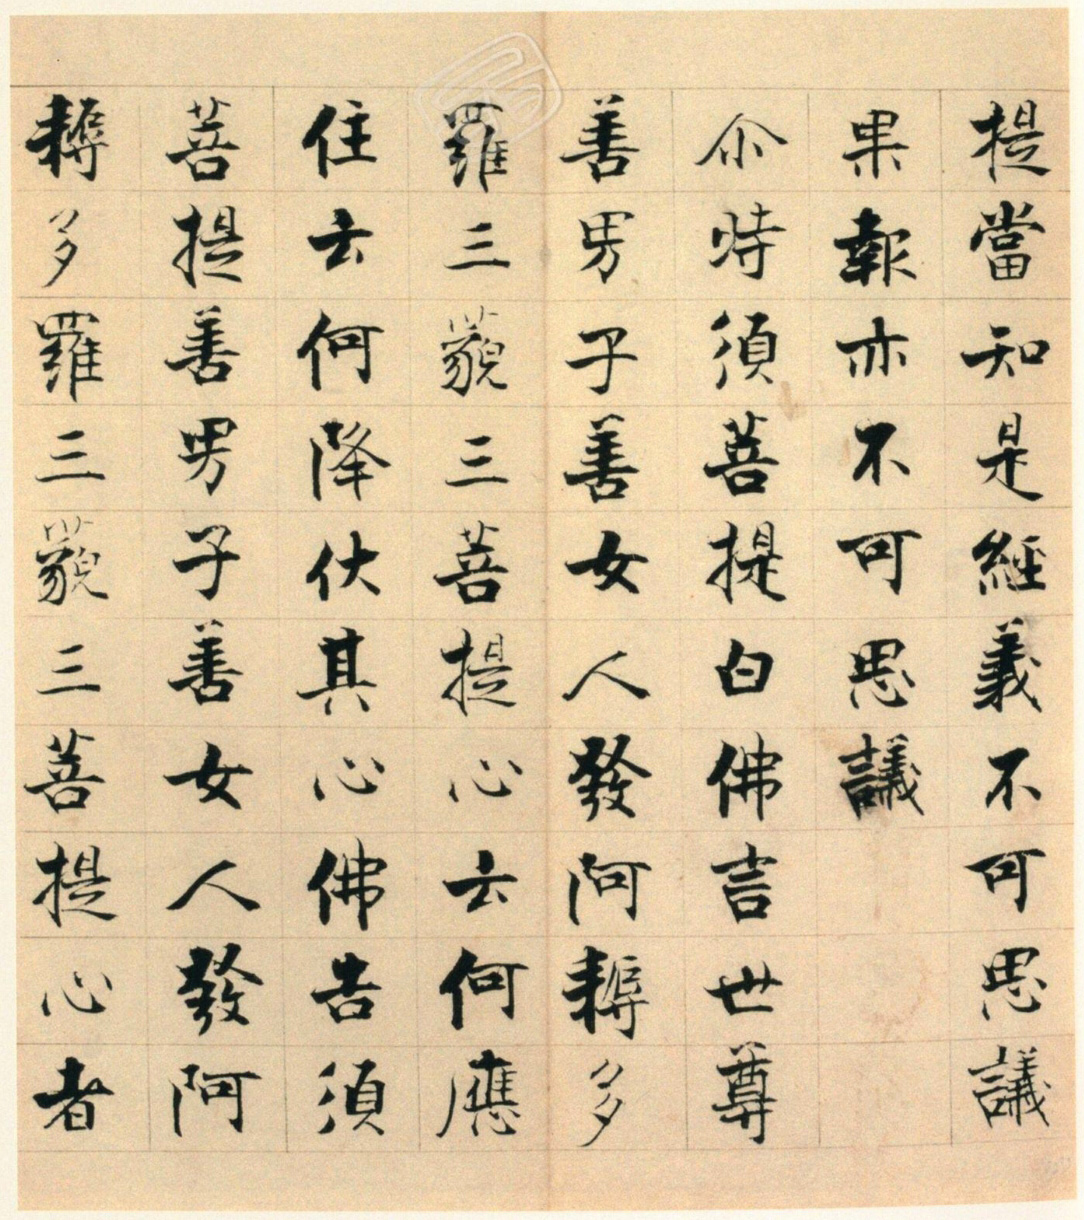 提當知是經義不可思議
果報亦不可思議
尒時須菩提白佛言世尊
善男子善女人發阿耨多
羅三藐三菩提心云何應
住云何降伏其心佛告須
菩提善男子善女人發阿
耨多羅三藐三菩提心者